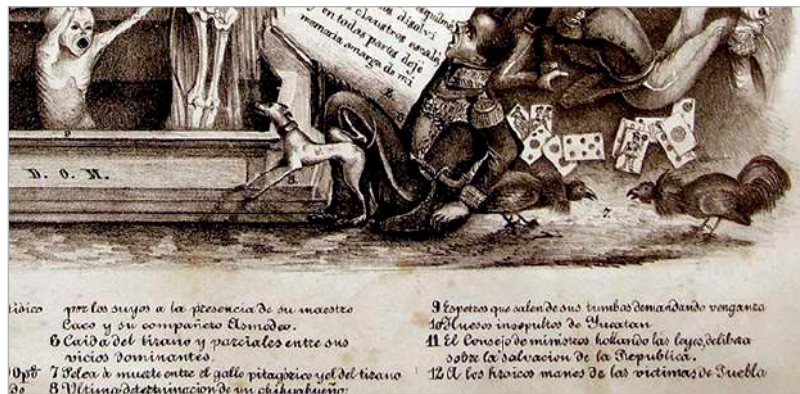 disolvi
claustros escaló,
y en todas partes deje
memoria amarga de mi
9
8
7
D. O. M.
por los suyos a la presencia de su maestro
Caco y su compañero Asmodeo.
6 Caida del tirano y parciales entre sus
vicios dominantes.
7 Pelea à muerte entre el gallo pitagórico y el del tirano
8 Ultima determinacion de un chihuahueño:
9 Espetros que salen de sus tumbas demandando venganza
10 Huesos insepultos de Yucatan
11 El Consejo de ministros hollando las leyes, delibera
sobre la salvacion de la Republica.
12 A los heroicos manes de las victimas de Puebla